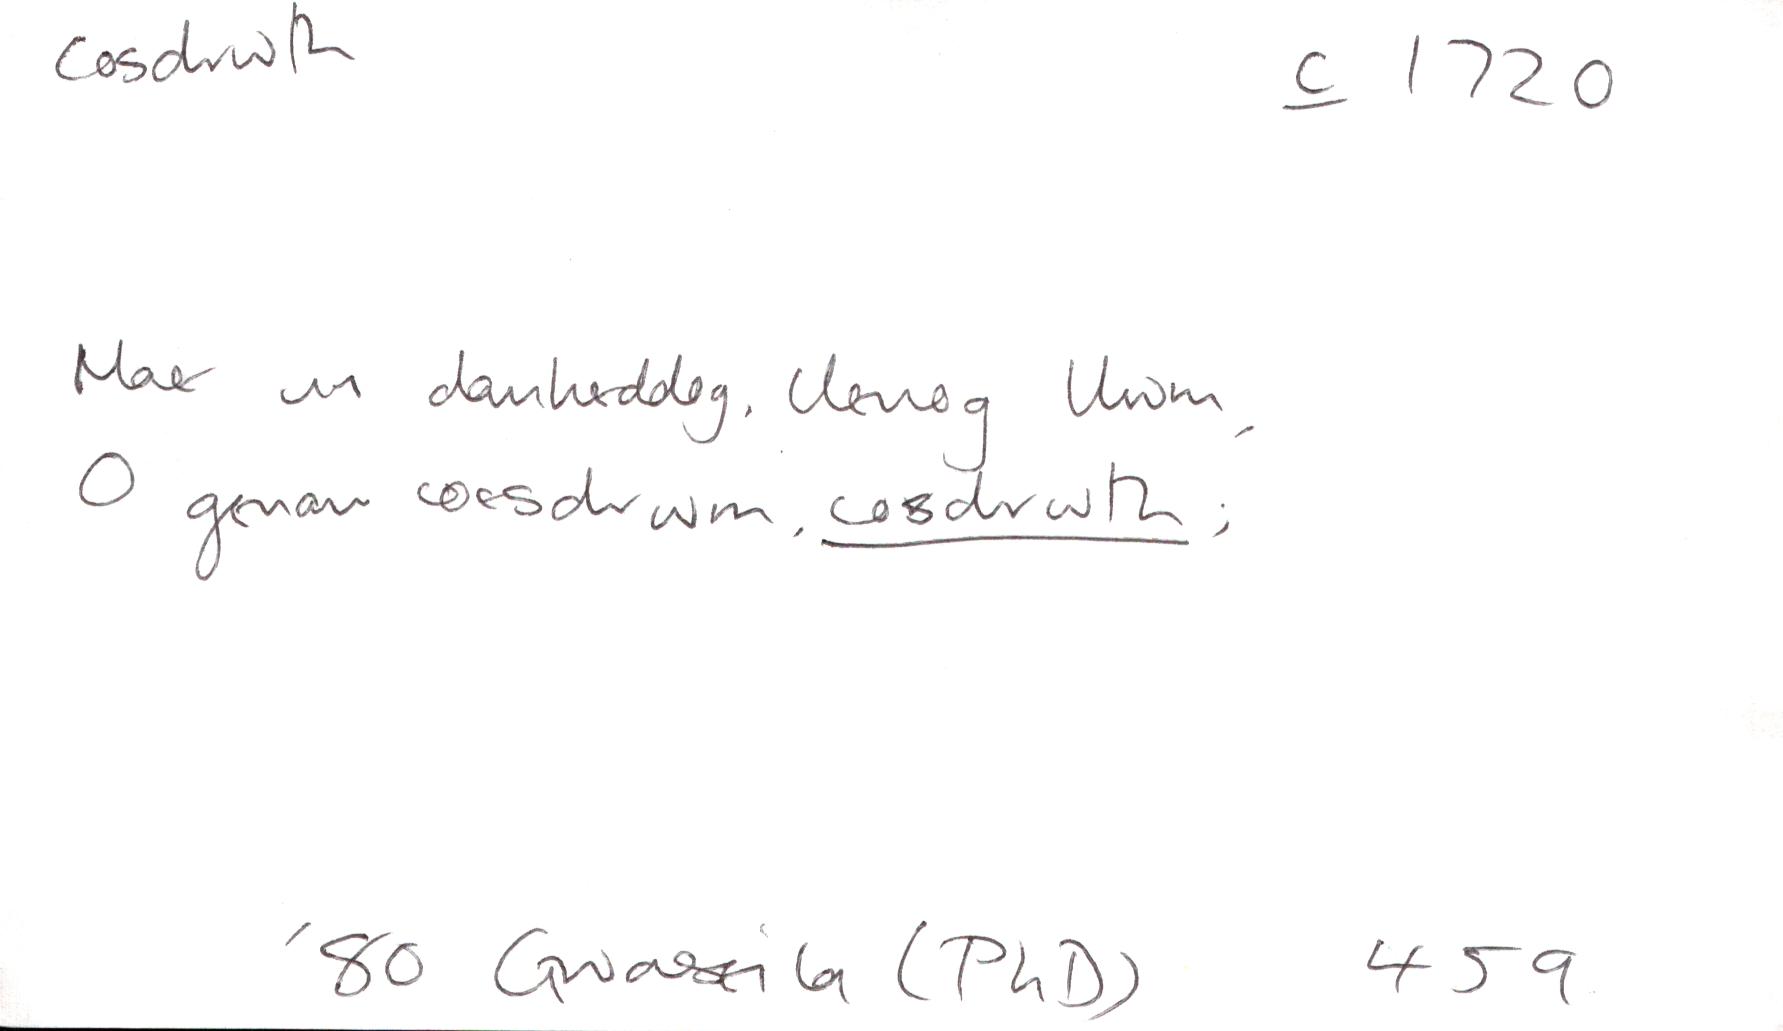 cosdrwth c 1720
Mae yn danheddog, llenog llwm,
O genau coesdrwm, cosdrwth;
'80 (PhD) 459